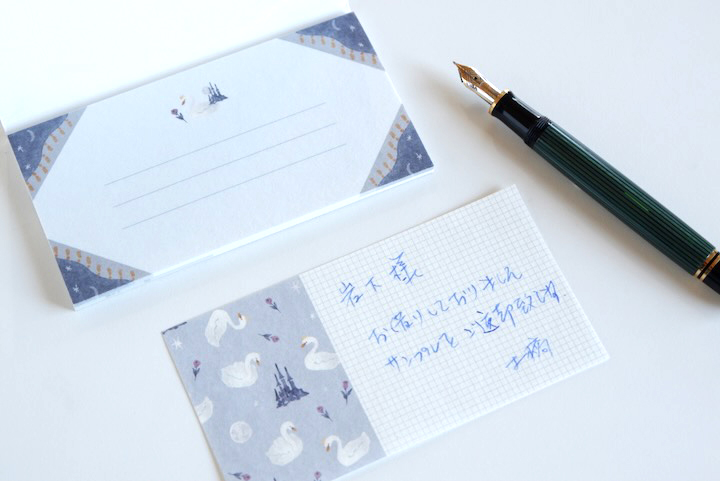 岩下様
お借りしておりました
サンプルをご返却致します。
土橋